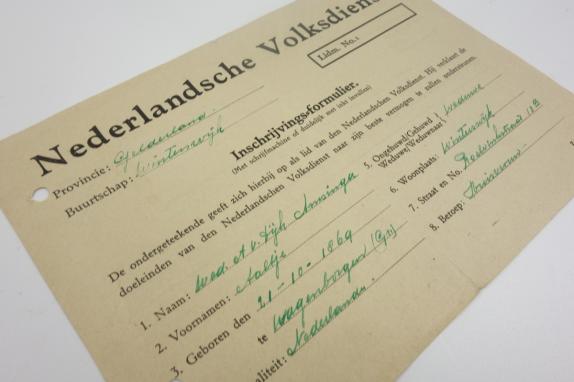 Nederlandsche Volksdiens
Lidm. No.:
Provincie: Gelderland.
Buurtschap: Winterswijk
Inschrijvings-formulier.
(Met schrijfmachine of duidelijk met inkt invullen)
De ondergeteekende geeft zich hierbij op als lid van den Nederlandschen Volksdienst. Hij verklaart de
doeleinden van den Nederlandschen Volksdienst naar zijn beste vermogen te zullen ondersteunen.
1. Naam: Wed. A v. Dijk-Ansinga
2. Voornamen: Aaltje
3. Geboren den 21-10-1869
te Wagenborgen (Gr.)
aliteit: Nederlandse.
5. Ongehuwd/Gehuwd
Weduwe/Weduwnaar: Weduwe
6. Woonplaats: Winterswijk
7. Straat en No.
8. Beroep: Huisvrouw